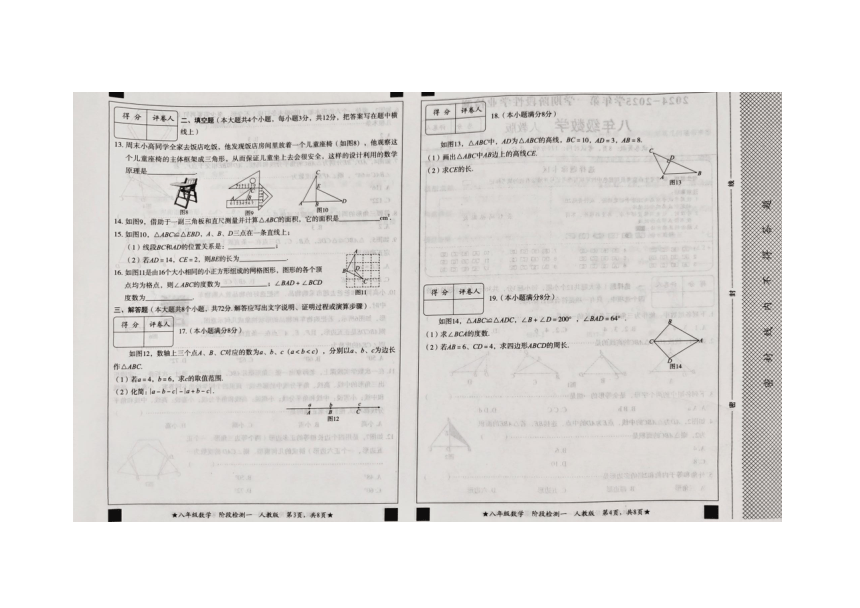 得 分 评卷人
二、填空题（本大题共4个小题，每小题3分，共12分，把答案写在题中横
线上）
13. 周末小高同学全家去饭店吃饭，他发现饭店房间里放着一个儿童座椅（如图8），他观察这
个儿童座椅的主体框架成三角形，从而保证儿童坐上去会很安全，这样的设计利用的数学
原理是
图8
图9
A B C D E
图10
14. 如图9，借助于一副三角板和直尺测量并计算△ABC的面积，它的面积是 cm².
15. 如图10，△ABC≌△EBD，A、B、D三点在一条直线上；
（1）线段BC和AD的位置关系是： ；
（2）若AD=14，CE=2，则BE的长为 .
16. 如图11是由16个大小相同的小正方形组成的网格图形，图形的各个顶
点均为格点，则∠ABC的度数为 ；∠BAD+∠BCD
度数为
A B C D
图11
三、解答题（本大题共8个小题，共72分.解答应写出文字说明、证明过程或演算步骤）
得 分 评卷人
17.（本小题满分8分）
如图12，数轴上三个点A、B、C对应的数为a、b、c（a<b<c），分别以a、b、c为边长
作△ABC.
（1）若a=4，b=6，求c的取值范围.
（2）化简：|a-b-c|-|a+b-c|.
a b c
A B C
图12
★八年级数学 阶段检测一 人教版 第3页，共8页★
得 分 评卷人
18.（本小题满分8分）
如图13，△ABC中，AD为△ABC的高线，BC=10，AD=3，AB=8.
（1）画出△ABC中AB边上的高线CE.
（2）求CE的长.
C D A B
图13
得 分 评卷人
19.（本小题满分8分）
如图14，△ABC≌△ADC，∠B+∠D=200°，∠BAD=64°.
（1）求∠BCA的度数.
（2）若AB=6，CD=4，求四边形ABCD的周长.
B C A D
图14
★八年级数学 阶段检测一 人教版 第4页，共8页★
密 封 线
密 封 线 内 不 得 答 题